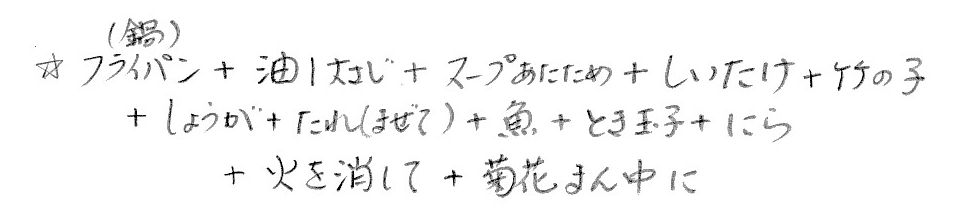 (鍋)
☆ フライパン + 油1大さじ + スープあたため + しいたけ + 竹の子
+ しょうが + たれ(まぜて) + 魚 + とき玉子 + にら
+ 火を消して + 菊花まん中に